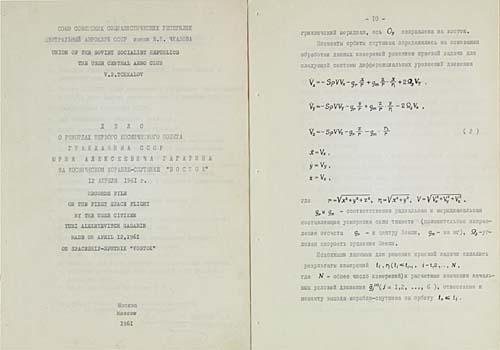 СОЮЗ СОВЕТСКИХ СОЦИАЛИСТИЧЕСКИХ РЕСПУБЛИК
ЦЕНТРАЛЬНЫЙ АЭРОКЛУБ СССР имени В.П. ЧКАЛОВА
UNION OF THE SOVIET SOCIALIST REPUBLICS
THE USSR CENTRAL AERO CLUB
V.P.TCHKALOV
Д Е Л О
О РЕКОРДАХ ПЕРВОГО КОСМИЧЕСКОГО ПОЛЕТА
ГРАЖДАНИНА СССР
ЮРИЯ АЛЕКСЕЕВИЧА ГАГАРИНА
НА КОСМИЧЕСКОМ КОРАБЛЕ-СПУТНИКЕ "ВОСТОК"
12 АПРЕЛЯ 1961 г.
RECORDS FILE
ON THE FIRST SPACE FLIGHT
BY THE USSR CITIZEN
YURI ALEXEYEVICH GAGARIN
MADE ON APRIL 12,1961
ON SPACESHIP-SPUTNIK "VOSTOK"
Москва
Moscow
1961
- 10 -
гринический меридиан, ось Oy направлена на восток.
Элементы орбиты спутника определялись на основании
обработки данных измерений решением краевой задачи для
следующей системы дифференциальных уравнений движения
( 2 )
ẋ = Vx ,
ẏ = Vy ,
ż = Vz ,
где
gr и gm - соответственно радиальная и меридиональная
составляющие ускорения силы тяжести (положительные направления
отсчета gr - к центру Земли, gm - на юг), Ω3 -угловая
скорость вращения Земли.
Исходными данными для решения краевой задачи являлись
результаты измерений
где N - общее число измерений) и расчетные значения начальных
условий движения (j = 1, 2, ..., 6 ), отнесенные к
моменту выхода корабля-спутника на орбиту